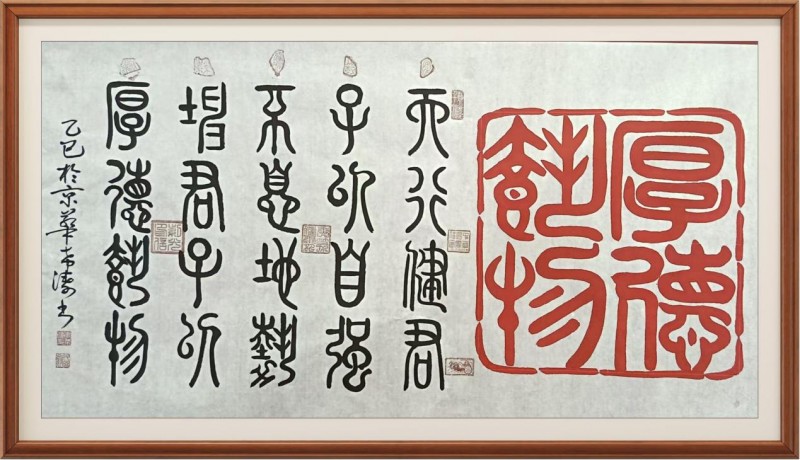 厚德
載物
天行健君
子以自强
不息地勢
坤君子以
厚德載物
乙巳於京華